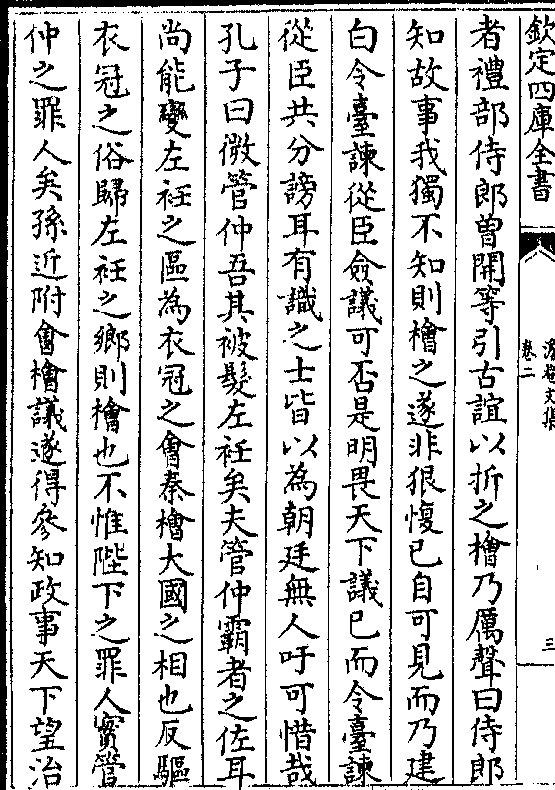 欽定四庫全書
澹菴文集
卷二
三
者禮部侍郎曾開等引古誼以折之檜乃厲聲曰侍郎
知故事我獨不知則檜之遂非狠愎已自可見而乃建
白令臺諫從臣僉議可否是明畏天下議已而令臺諫
從臣共分謗耳有識之士皆以為朝廷無人吁可惜哉
孔子曰微管仲吾其被髮左衽矣夫管仲霸者之佐耳
尚能變左衽之區為衣冠之會秦檜大國之相也反驅
衣冠之俗歸左衽之鄉則檜也不惟陛下之罪人實管
仲之罪人矣孫近附會檜議遂得參知政事天下望治